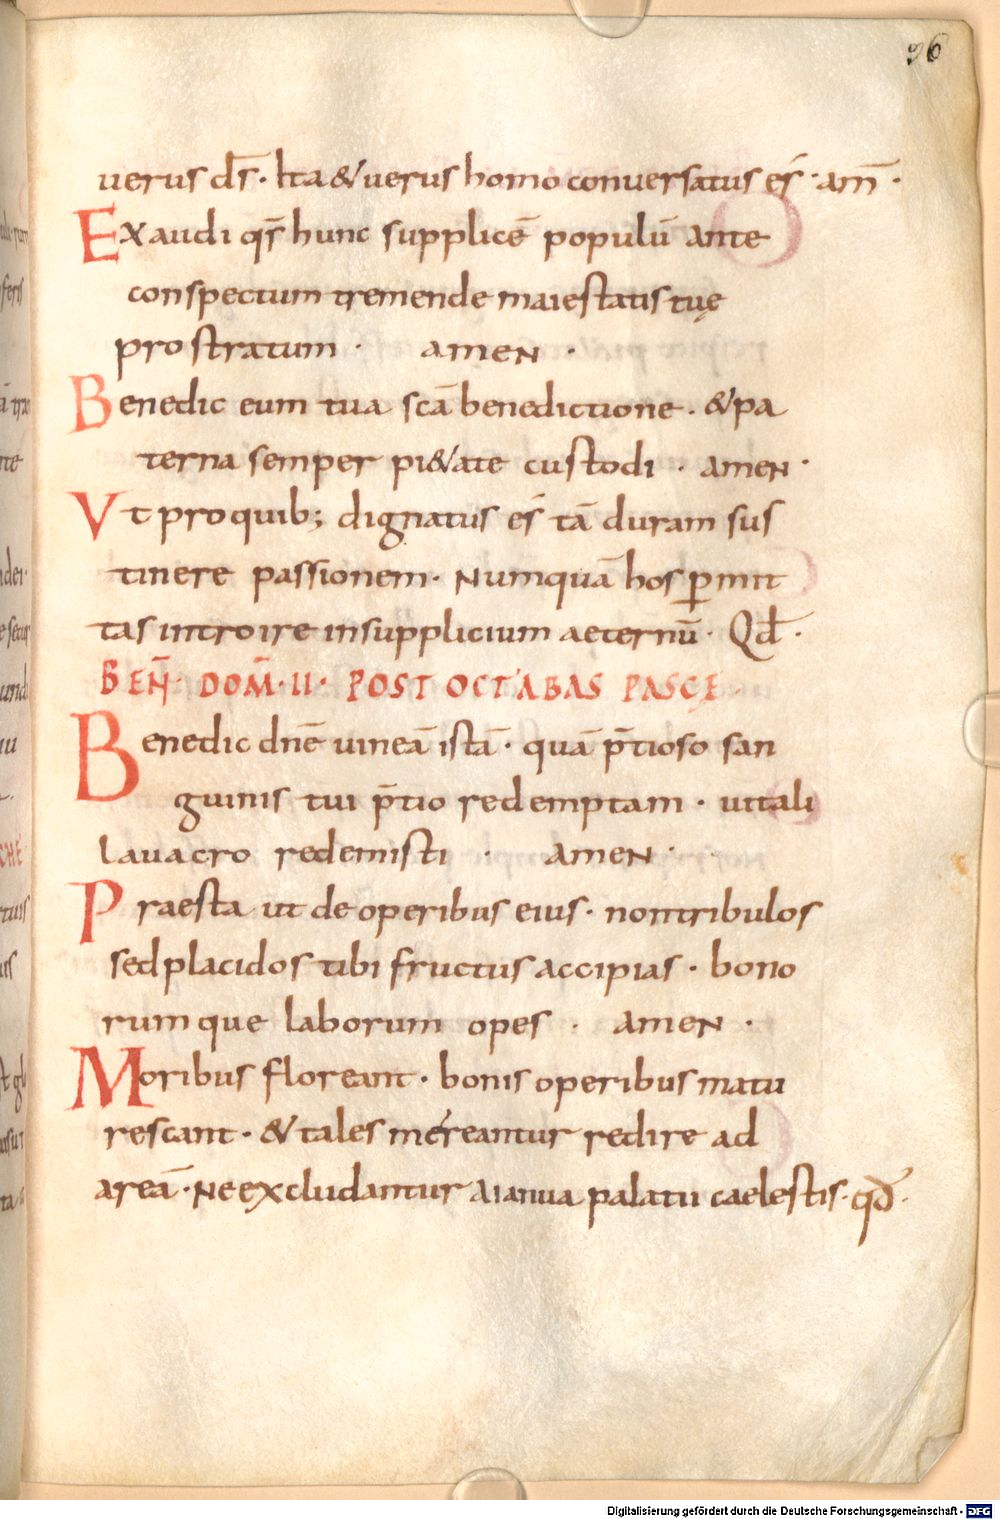 36
uerus ds̄. Ita & uerus homo conuersatus es̄. am̄.
Exaudi qs̄ hunc supplicē populū ante
conspectum tremende maiestatis tuę
prostratum. AMEN.
Benedic eum tua scā benedictione. & pa
terna semper pi&ate custodi. AMEN.
Vt pro quib; dignatus es̄ tā duram sus
tinere passionem. Numquā hos ꝑmit
tas introire in supplicium aeternū. Qd̄.
BEN̄. DOM̄. II. POST OCTABAS PASCĘ.
Benedic dn̄e uineā istā. quā p̄tioso san
guinis tui p̄tio redemptam. uitali
lauacro redemisti. AMEN.
Praesta ut de operibus eius. non tribulos
sed placidos tibi fructus accipias. bono
rumque laborum opes. AMEN.
Moribus floreant. bonis operibus matu
rescant. & tales mereantur redire ad
areā. Ne excludantur a ianua palatii caelestis. qđ.
Digitalisierung gefördert durch die Deutsche Forschungsgemeinschaft - DFG